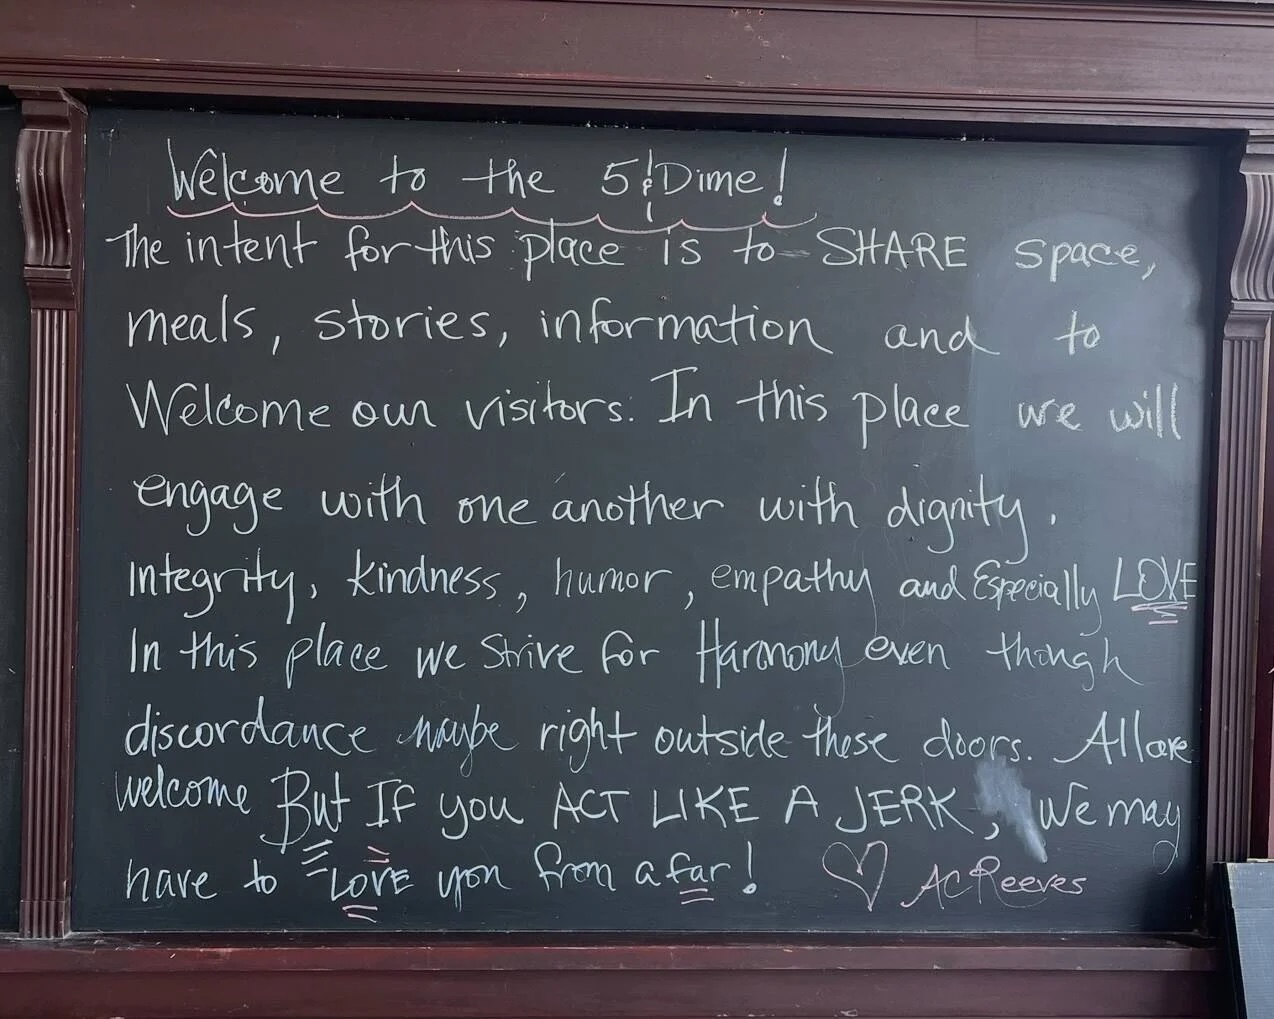 Welcome to the 5 & Dime!
The intent for this place is to SHARE space,
meals, stories, information and to
Welcome our visitors. In this place we will
engage with one another with dignity.
Integrity, kindness, humor, empathy and Especially LOVE
In this place we strive for Harmony even though
discordance maybe right outside these doors. All are
welcome But IF you ACT LIKE A JERK, We may
have to LOVE you from afar! ♡ AC Reeves